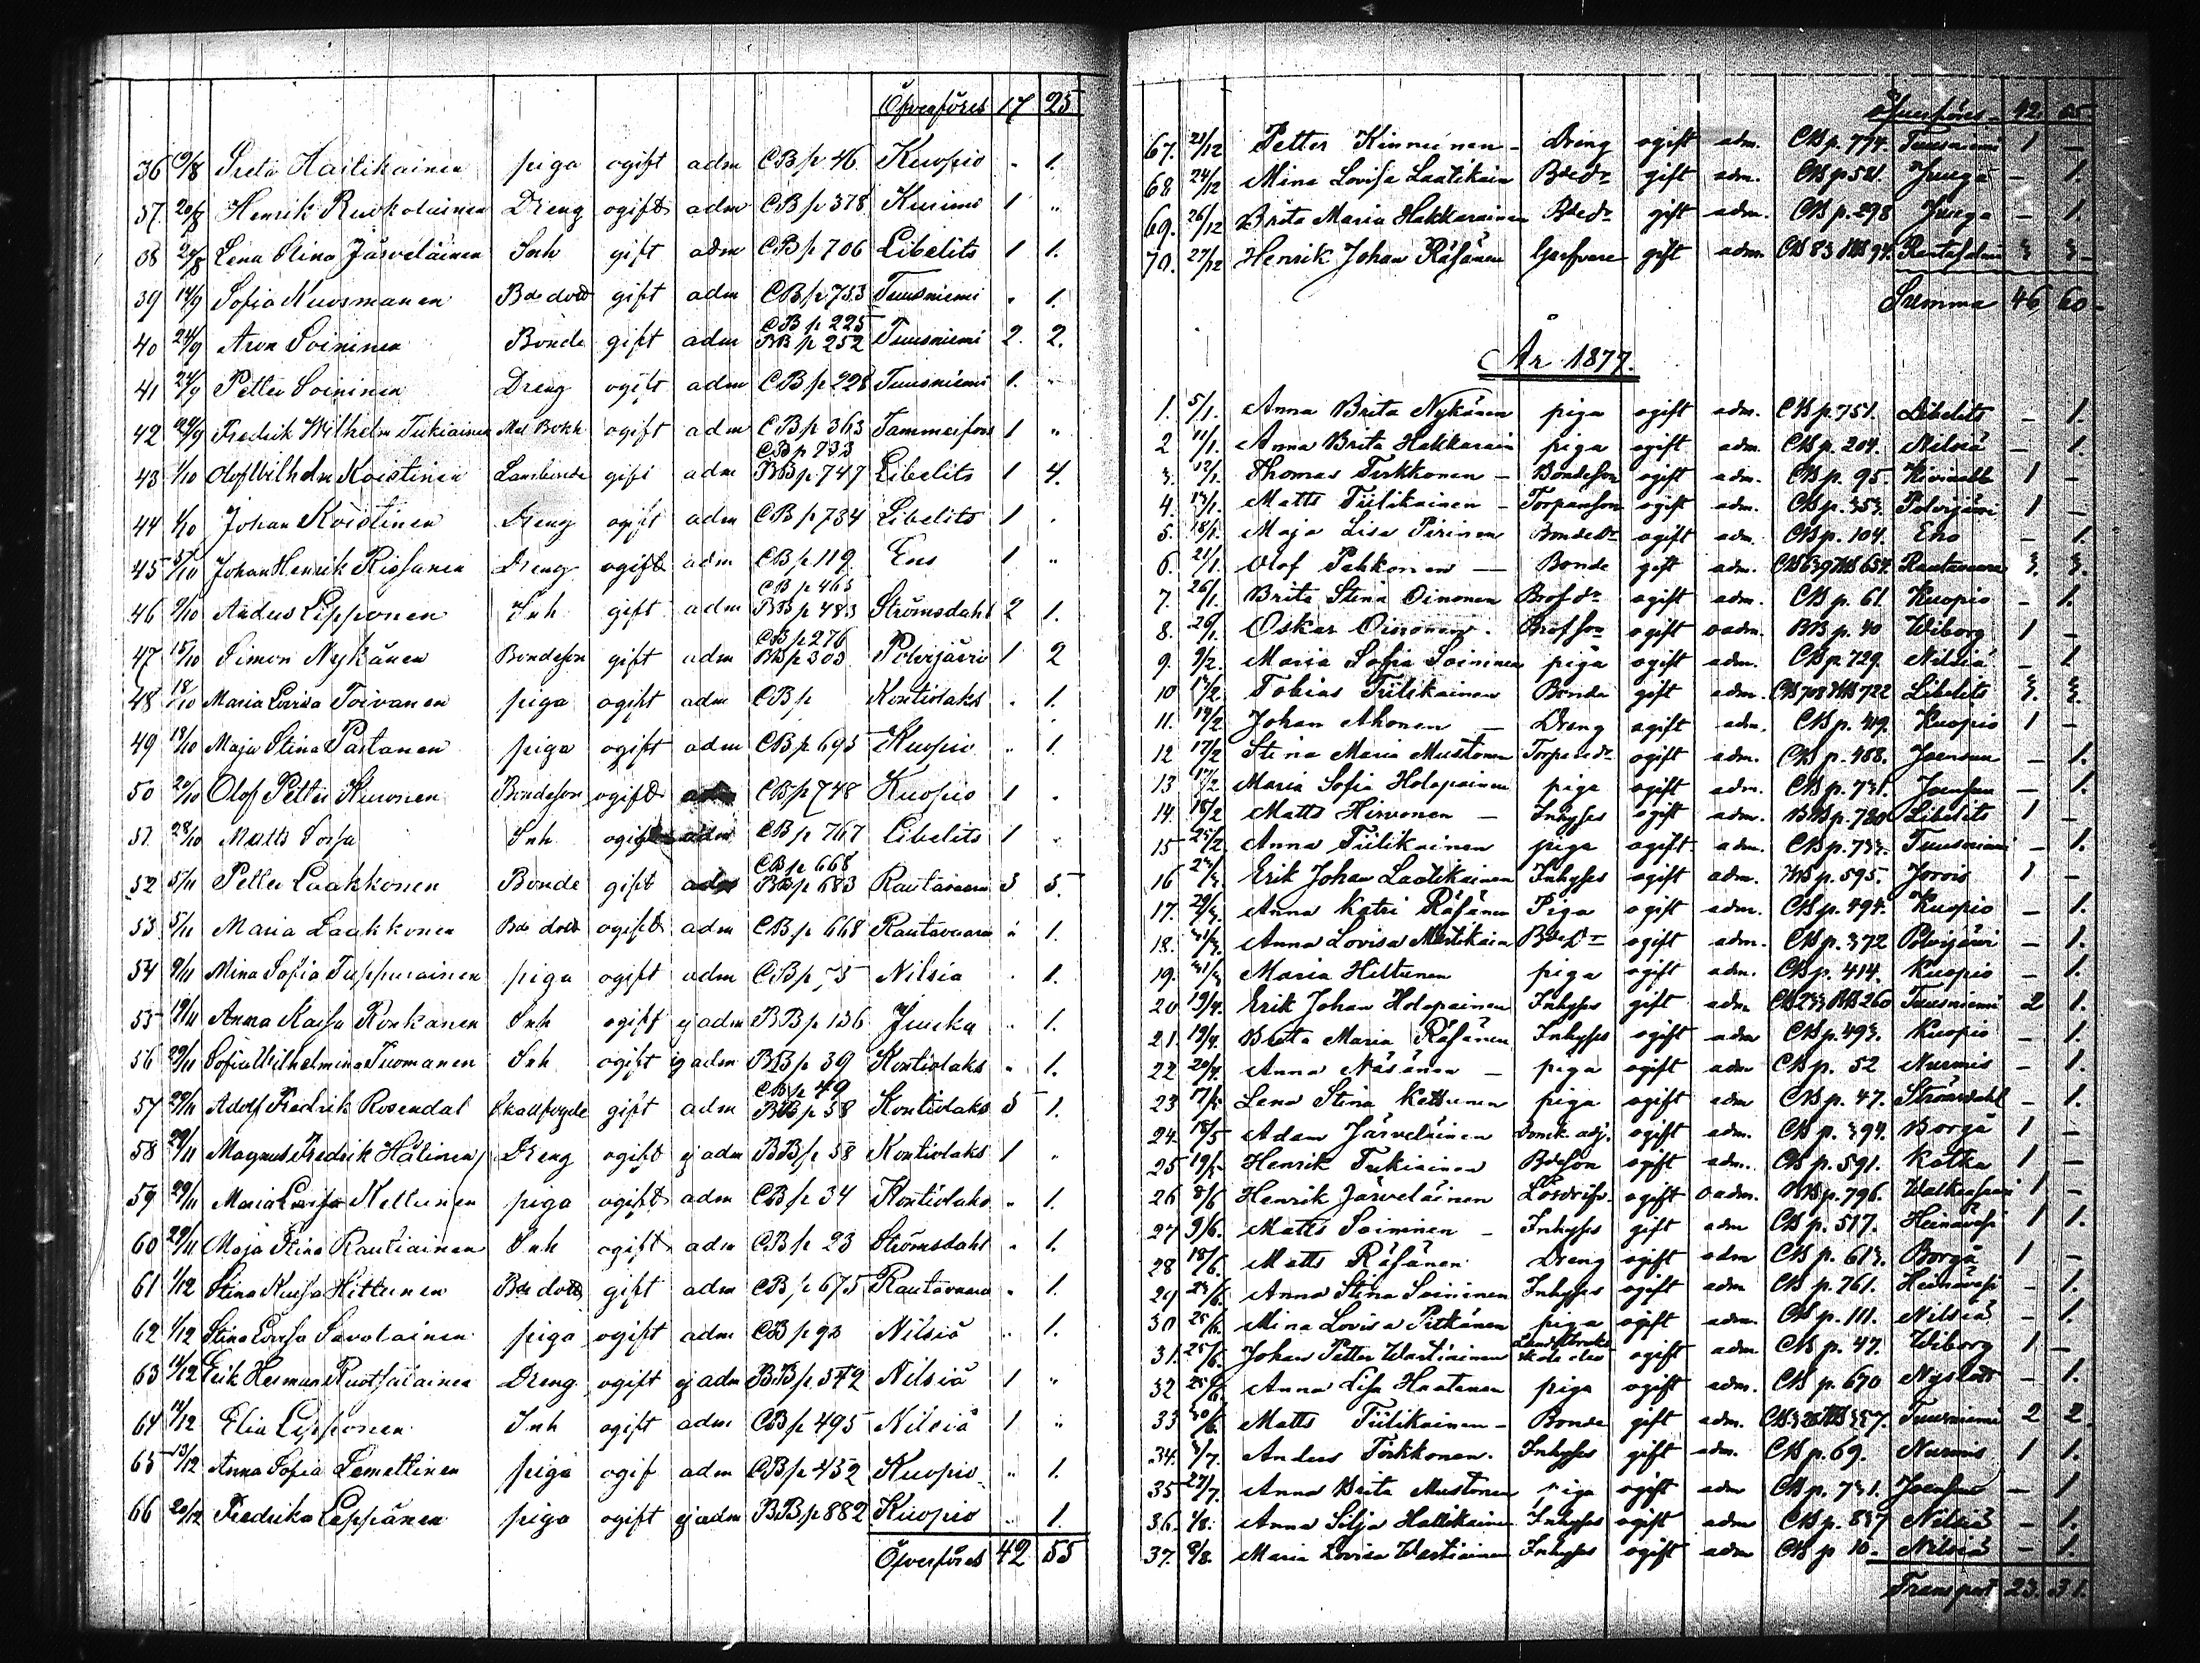 Öfverföres 17 25
36 9/8 Greta Hailikainen piga ogift adm CB p 46 Kuopio " 1.
37. 20/8 Henrik Ruokolainen Dreng ogift adm CB p 378 Kurimo 1 "
38 29/8 Lena Stina Järveläinen Inh gift adm CB p 706 Libelits 1 1.
39 14/9 Sofia Kuosmanen Bde dotr gift adm CB p 733 Tuusniemi " 1.
40 24/9 Aron Soininen Bonde gift adm CB p 225 BB p 252 Tuusniemi 2. 2.
41 24/9 Petter Soininen Dreng ogift adm CB p 228 Tuusniemi 1. "
42 29/9 Fredrik Wilhelm Tukiainen ogift adm CB p 363 Tammerfors 1 "
43 1/10 Olof Wilhelm Koistinen gift adm CB p 733 BB p 747 Libelits 1 4.
44 1/10 Johan Koistinen Dreng ogift adm CB p 734 Libelits 1 "
45 5/10 Johan Henrik Rissanen Dreng ogift adm CB p 119 Eno 1 "
46 9/10 Anders Lipponen Inh gift adm CB p 465 BB p 483 Strömsdahl 2 1.
47 15/10 Simon Nykänen Bondeson gift adm CB p 276 BB p 303 Polvijärvi 1 2
48 18/10 Maria Lovisa Toivanen piga ogift adm CB p Kontiolaks " 1.
49 19/10 Maja Stina Partanen piga ogift adm CB p 695 Kuopio " 1.
50 20/10 Olof Petter Kuronen Bondeson ogift adm CB p 748 Kuopio 1 "
51. 28/10 Matts Sorsa Inh ogift adm CB p 767 Libelits 1 "
52 5/11 Petter Laakkonen Bonde gift adm CB p 668 BB p 683 Rautavaara 3 5.
53 5/11 Maria Laakkonen Bde dotr ogift adm CB p 668 Rautavaara " 1.
54 9/11 Mina Sofia Tuppurainen piga ogift adm CB p 75 Nilsiä " 1.
55 19/11 Anna Kaisa Ronkanen Inh ogift ej adm BB p 136 Juuka " 1.
56 29/11 Sofia Wilhelmina Tuomanen Inh ogift ej adm BB p 39 Kontiolaks " 1.
57 29/11 Adolf Fredrik Rosendal Skallfogde gift adm CB p 49 BB p 58 Kontiolaks 3 1.
58 29/11 Magnus Fredrik Hälinen Dreng ogift ej adm BB p 58 Kontiolaks 1 "
59 29/11 Maria Lovisa Kettunen piga ogift adm CB p 34 Kontiolaks " 1.
60 29/11 Maja Stina Rautiainen Inh ogift adm CB p 23 Strömsdahl " 1.
61 1/12 Stina Kaisa Hiltunen Bde dotr gift adm CB p 675 Rautavaara " 1.
62 1/12 Stina Lovisa Savolainen piga ogift adm CB p 93 Nilsiä " 1.
63 12/12 Erik Herman Ruotsalainen Dreng ogift ej adm BB p 542 Nilsiä 1 "
64 12/12 Elia Lipponen Inh ogift adm CB p 495 Nilsiä 1 "
65 13/12 Anna Sofia Lemettinen piga ogif adm CB p 432 Kuopio " 1.
66 20/12 Fredrika Leppänen piga ogift ej adm BB p 882 Kuopio " 1.
Öfverföres 42 55
Öfverföres 42. 55.
67. 21/12 Petter Kinnunen - Dreng ogift adm. CB p. 774. Tuusniemi 1 -
68 24/12 Mina Lovisa Laatikain Bde Dr gift adm. CB p 521. Juuga - 1.
69. 26/12 Brita Maria Hakkarainen Bde Dr gift adm. CB p. 298 Juuga - 1.
70. 27/12 Henrik Johan Räsänen Garfvare gift adm CB 83 BB 94. Rantasalmi 3 3.
Summa 46 60.
År 1877.
1. 5/1. Anna Brita Nykänen piga ogift adm. CB p. 751. Libelits - 1.
2 11/1. Anna Brita Hakkarain piga ogift adm. CB p. 204. Nilsiä - 1.
3. 12/1. Thomas Tirkkonen - Bondeson ogift adm. CB p. 95. 1 -
4. 13/1. Matts Tiilikainen - Torpareson ogift adm. CB p. 353. Polvijärvi 1 -
5. 18/1. Maja Lisa Pirinen Bonde Dr ogift adm. CB p. 104. Eno - 1.
6. 21/1. Olof Pakkonen - Bonde gift adm. CB 639 BB 657. Rautavaara 3. 3.
7. 26/1. Brita Stina Oinonen ogift adm. CB p. 61. Kuopio - 1.
8. 26/1. Oskar Oinonen. ogift oadm. BB p. 40 Wiborg 1 -
9. 9/2. Maria Sofia Soininen piga ogift adm. CB p. 729. Nilsiä - 1
10 13/2. Tobias Tiilikainen Bonde gift adm. CB 708 BB 722 Libelits 3. 3.
11. 14/2 Johan Ahonen - Dreng ogift adm. CB p. 419. Kuopio 1 -
12 17/2 Stina Maria Mustonen Torpare Dr ogift adm. CB p. 488. Joensuu - 1.
13 17/2 Maria Sofia Holopainen piga ogift adm. CB p. 731. Joensuu - 1.
14. 18/2 Matts Hirvonen - Inhyses ogift adm. BB p. 780 Libelits 1 -
15 25/2 Anna Tiilikainen piga ogift adm. CB p. 733. Tuusniemi - 1.
16 23/3. Erik Johan Laatikainen Inhyses ogift adm. BB p. 595. Jorois 1 -
17. 29/3. Anna Katri Räsänen Piga ogift adm. CB p. 494. Kuopio - 1.
18. 31/3. Anna Lovisa Martikain Bde Dr ogift adm. CB p. 372 Polvijärvi - 1.
19. 31/3 Maria Hiltunen piga ogift adm. CB p. 414. Kuopio - 1.
20 19/4. Erik Johan Holopainen Inhyses gift adm CB 233 BB 260 Tuusniemi 2 1.
21. 19/4. Brita Maria Räsänen Inhyses ogift adm CB p. 493. Kuopio - 1.
22 20/4. Anna Näsänen - piga ogift adm CB p. 52 Nurmis - 1.
23 17/5. Lena Stina Kettunen piga ogift adm CB p. 47. Strömsdahl - 1.
24. 18/5 Adam Järveläinen ogift adm. CB p. 394. Borgå 1 -
25 19/5 Henrik Tukiainen Bdeson ogift adm. CB p. 591. Kotka 1 -
26 8/6 Henrik Järveläinen Lösdrifv. ogift oadm. BB p. 796. Walkeasaari 1 -
27 9/6. Matts Soininen - Inhyses gift adm CB p. 517. Heinävesi 1 1.
28 18/6. Matts Räsänen Dreng ogift adm CB p. 613. Borgå 1 -
29 23/6. Anna Stina Soininen Inhyses ogift adm CB p. 761. Heinävesi - 1.
30 25/6. Mina Lovisa Pitkänen piga ogift adm. CB p. 111. Nilsiä - 1.
31. 25/6. Johan Petter Wartiainen Landtbruks skole elev ogift adm CB p. 47. Wiborg 1 -
32 25/6. Anna Lisa Haatanen piga ogift adm. CB p. 670 Nyslott - 1.
33 30/6. Matts Tiilikainen - Bonde gift adm. CB 328 BB 357. Tuusniemi 2 2.
34. 3/7. Anders Tirkkonen. Inhyses gift adm. CB p. 69. Nurmis 1 1.
35 27/7. Anna Brita Mustonen piga ogift adm CB p. 731. Joensuu - 1.
36. 1/8. Anna Silja Hallikainen Inhyses ogift adm CB p. 837 Nilsiä - 1.
37. 8/8. Maria Lovisa Wartiainen Inhyses ogift adm CB p 10. Nilsiä - 1.
Transport 23. 31.